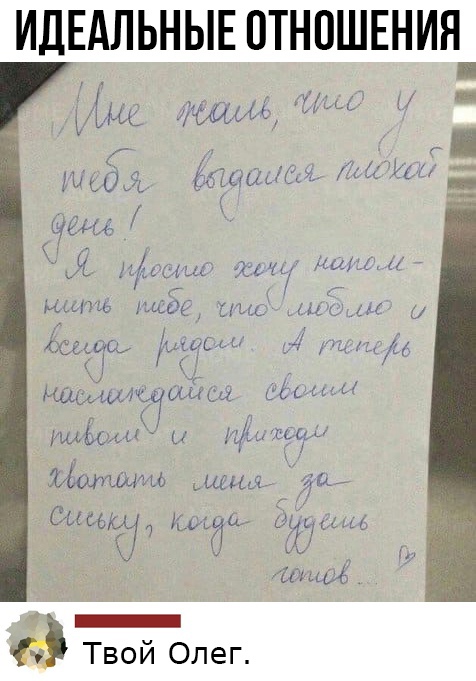 ИДЕАЛЬНЫЕ ОТНОШЕНИЯ
Мне жаль, что у
тебя выдался плохой
день!
Я просто хочу напом-
нить тебе, что люблю и
всегда рядом. А теперь
наслаждайся своим
пивом и приходи
хватать меня за
сиську, когда будешь
готов...
Твой Олег.